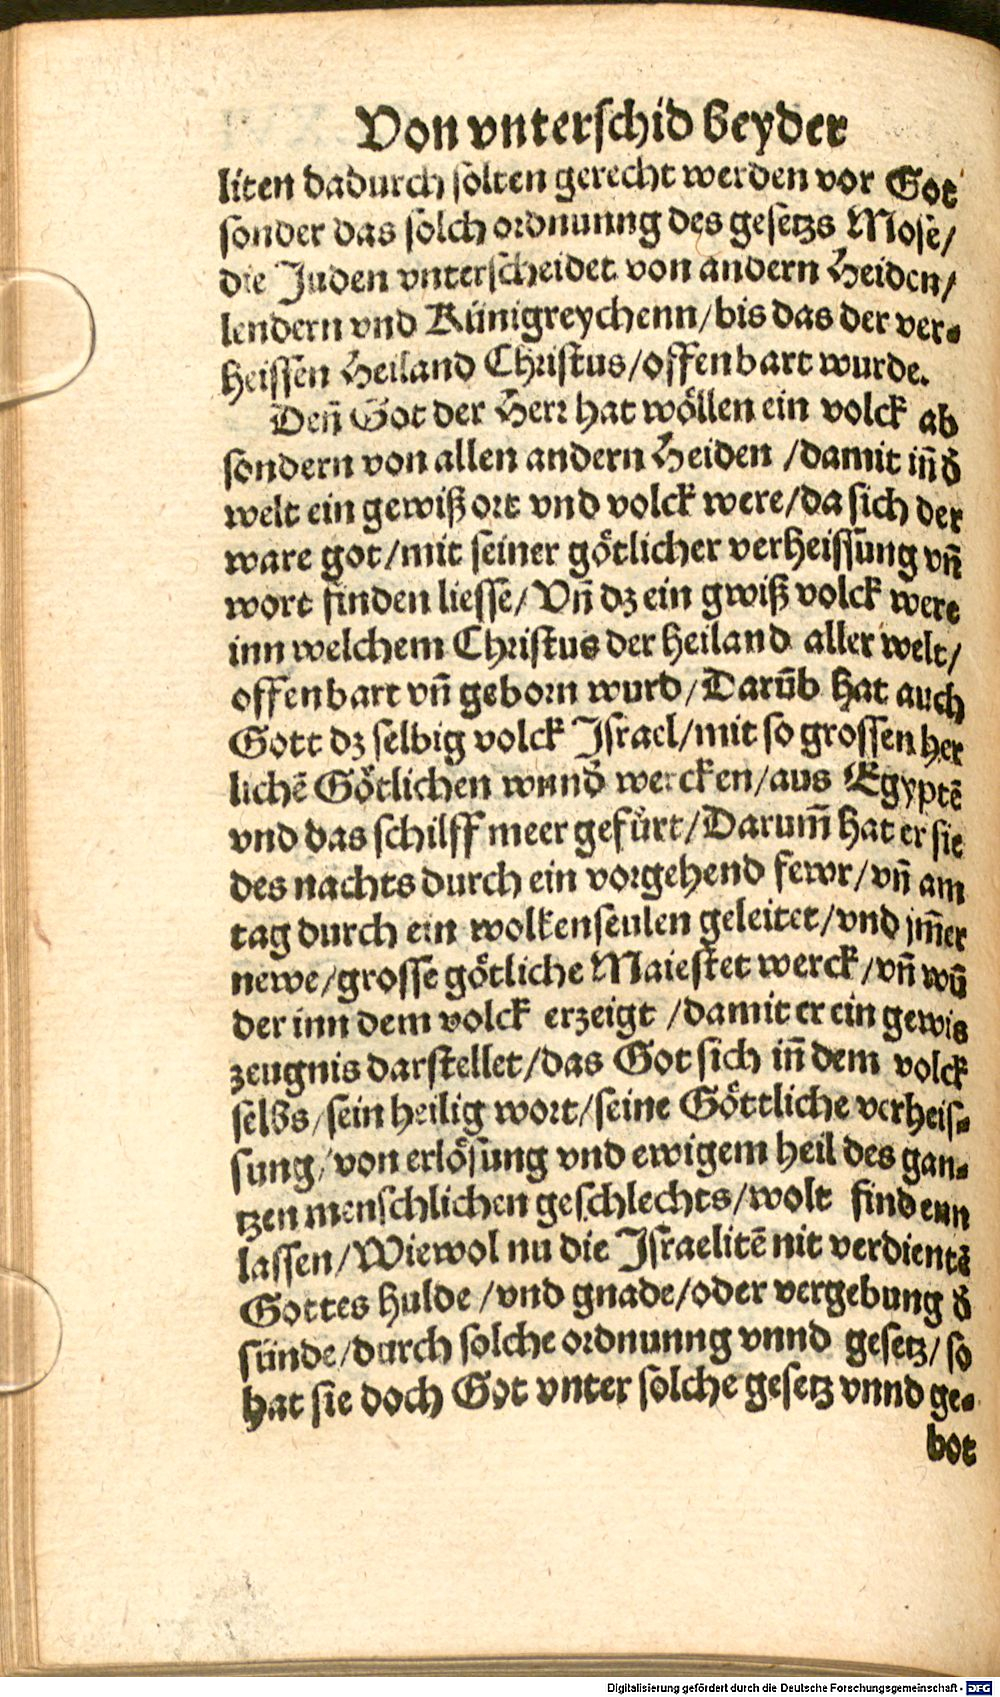 Von vnterschid beyder
liten dadurch solten gerecht werden vor Got
sonder das solch ordnunng des gesetzs Mose/
die Juden vnterscheidet von andern Heiden/
lendern vnd Künigreychenn/bis das der ver-
heissen Heiland Christus/offenbart wurde.
Deñ Got der Herr hat wöllen ein volck ab
sondern von allen andern Heiden /damit iñ d̄
welt ein gewiß ort vnd volck were/da sich der
ware got/mit seiner götlicher verheissung vñ
wort finden liesse/Vñ dz ein gwiß volck were
inn welchem Christus der heiland aller welt/
offenbart vñ geborn wurd/Darũb hat auch
Gott dz selbig volck Israel/mit so grossen her
lichẽ Götlichen wnnd̄ wercken/aus Egyptẽ
vnd das schilff meer gefürt/Darum̃ hat er sie
des nachts durch ein vorgehend fewr/vñ am
tag durch ein wolkenseulen geleitet/vnd jm̃er
newe/grosse götliche Maiestet werck/vñ wũ
der inn dem volck erzeigt /damit er ein gewis
zeugnis darstellet/das Got sich iñ dem volck
selbs/sein heilig wort/seine Göttliche verheis-
sung/von erlösung vnd ewigem heil des gan-
tzen menschlichen geschlechts/wolt findenn
lassen/Wiewol nu die Israelitẽ nit verdientẽ
Gottes hulde/vnd gnade/oder vergebung d̄
sünde/durch solche ordnunng vnnd gesetz/so
hat sie doch Got vnter solche gesetz vnnd ge-
bot
Digitalisierung gefördert durch die Deutsche Forschungsgemeinschaft - DFG